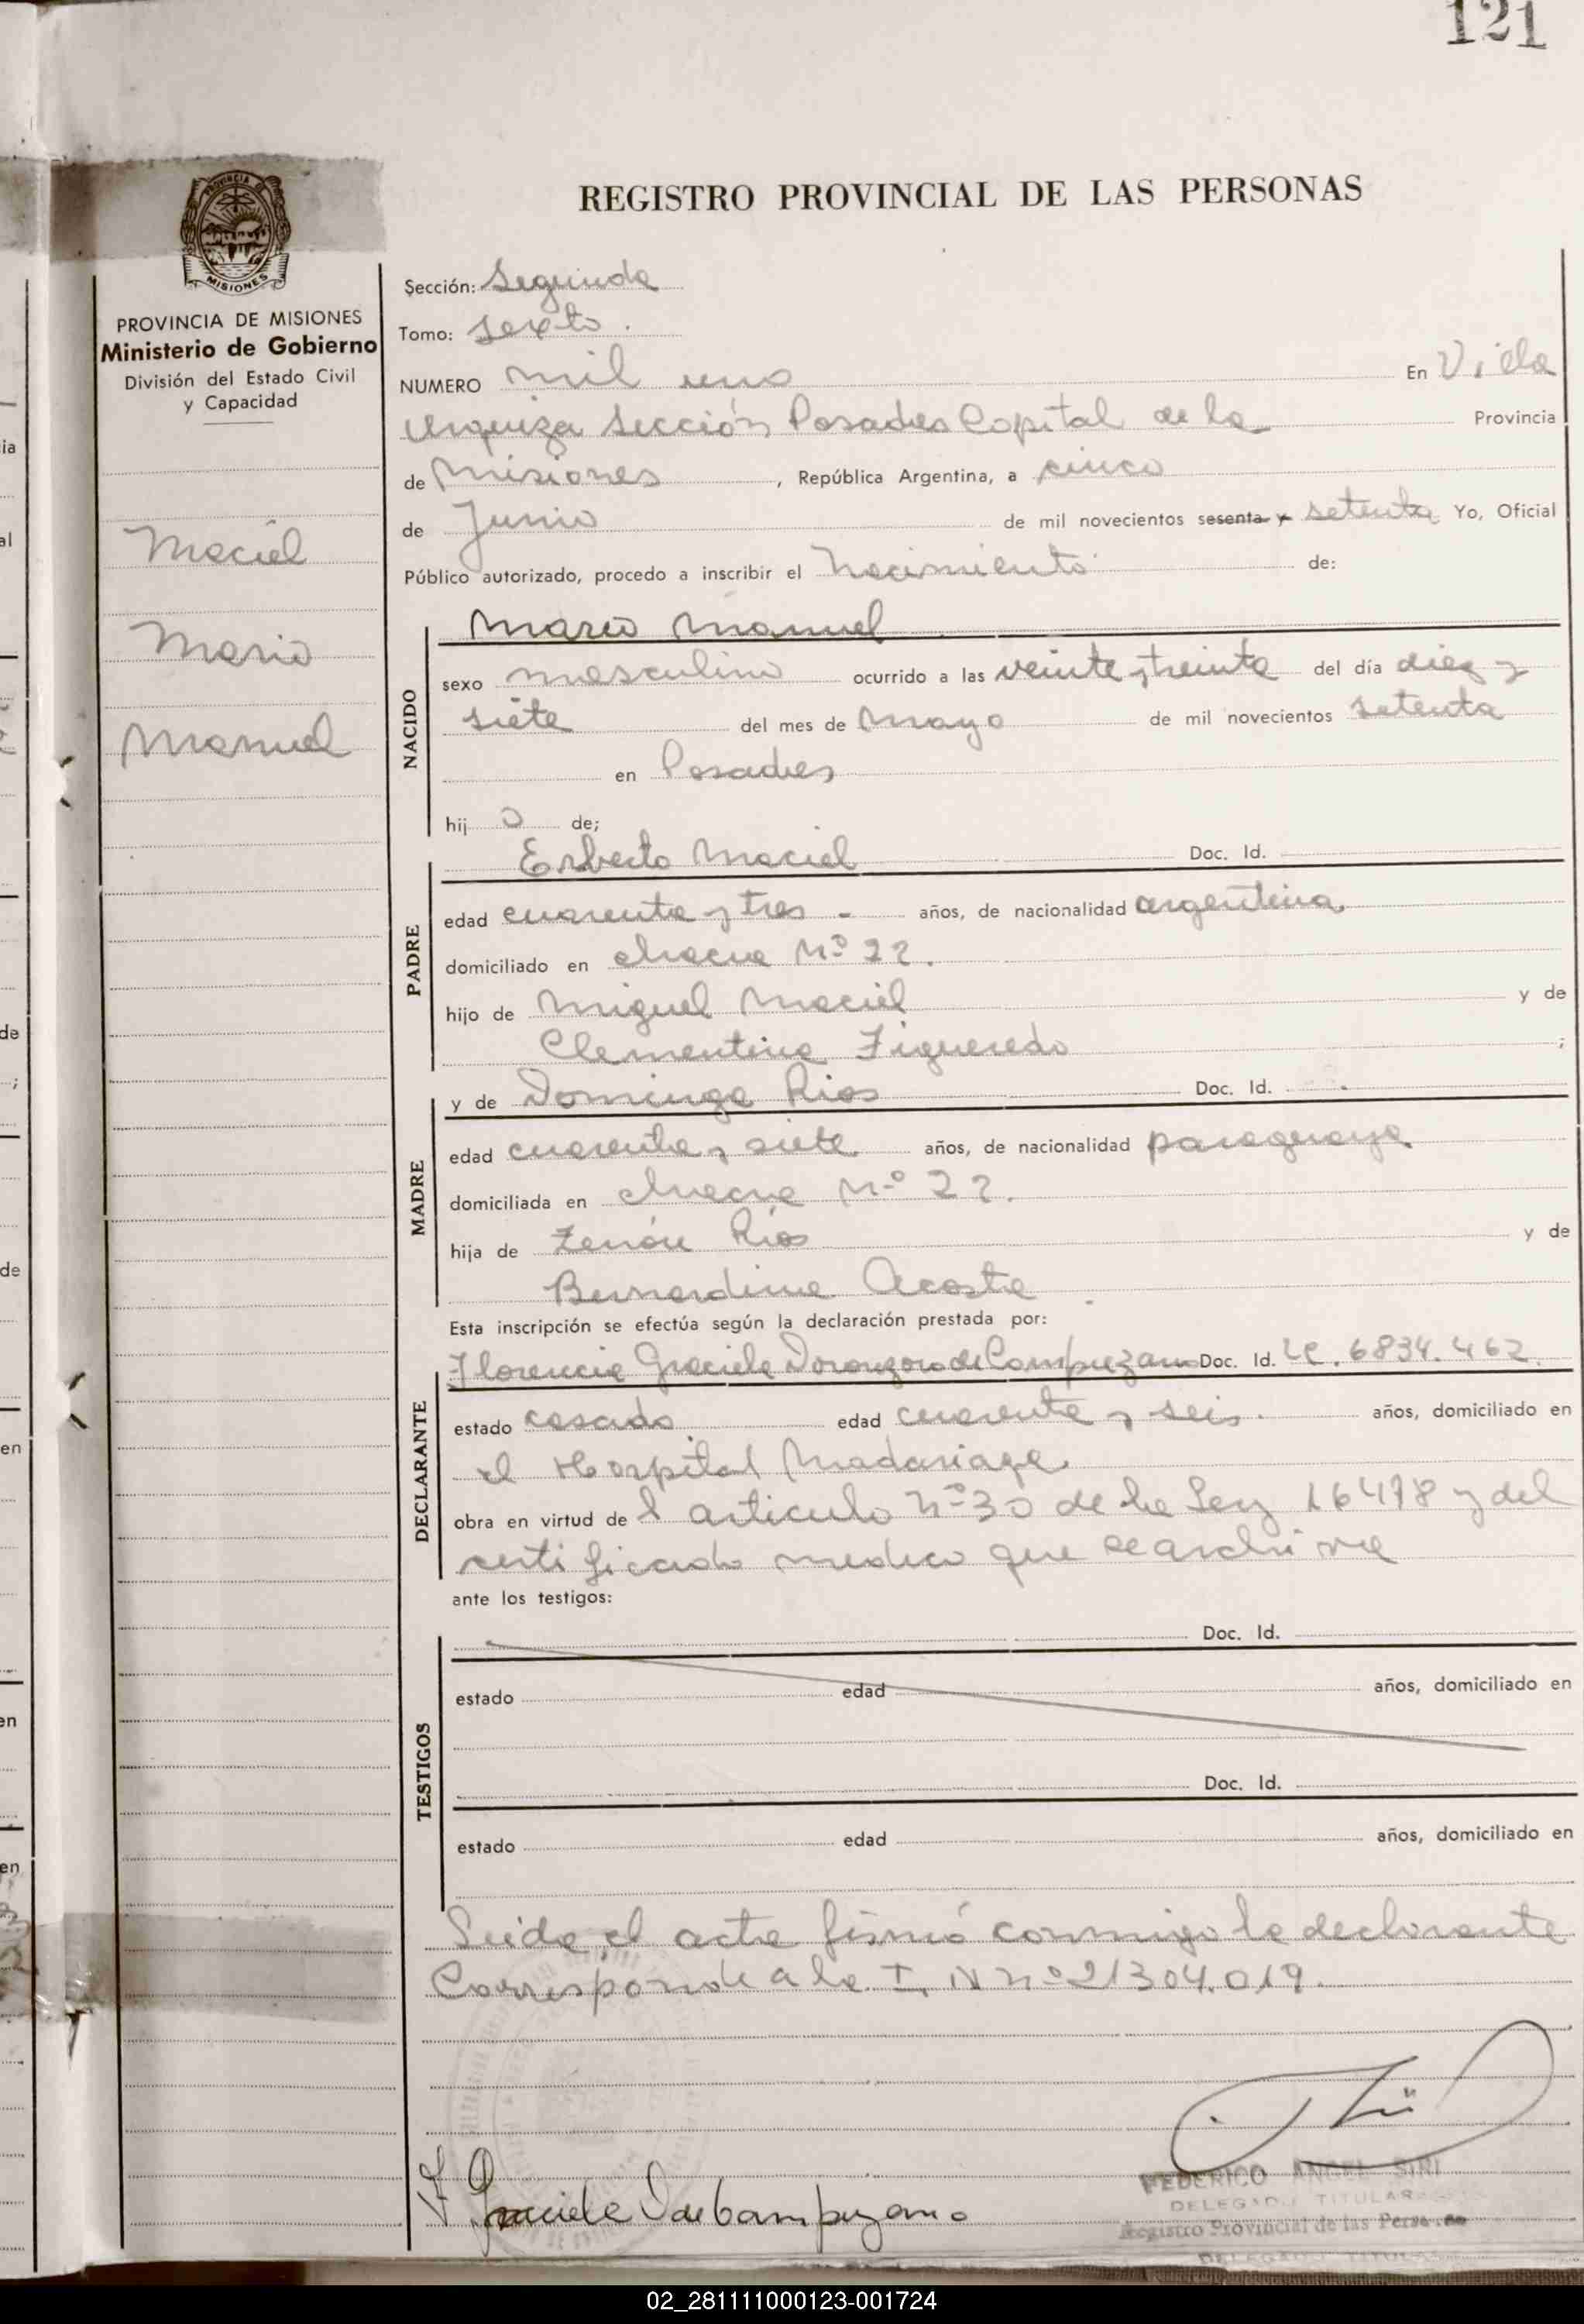 121
REGISTRO PROVINCIAL DE LAS PERSONAS
PROVINCIA DE MISIONES
Ministerio de Gobierno
División del Estado Civil
y Capacidad
Maciel
Mario
Manuel
Sección: Segunda
Tomo: Sexto.
NUMERO mil uno En Villa
Urquiza Sección Posadas Capital de la Provincia
de Misiones, República Argentina, a cinco
de Junio de mil novecientos sesenta y setenta Yo, Oficial
Público autorizado, procedo a inscribir el Nacimiento de:
NACIDO
Mario Manuel
sexo masculino ocurrido a las veinte y treinta del día diez y
siete del mes de Mayo de mil novecientos setenta
en Posadas
hij o de;
PADRE
Erberto Maciel Doc. Id.
edad cuarenta y tres - años, de nacionalidad argentina
domiciliado en chacra Nº 22.
hijo de Miguel Maciel y de
Clementina Figueredo ;
MADRE
y de Dominga Rios Doc. Id.
edad cuarenta y siete años, de nacionalidad paraguaya
domiciliada en chacra Nº 22.
hija de Zenón Ríos y de
Bernardina Acosta
Esta inscripción se efectúa según la declaración prestada por:
DECLARANTE
Florencia Graciela de Campuzano Doc. Id. LC. 6834.462
estado casado edad cuarenta y seis. años, domiciliado en
el Hospital Madariaga
obra en virtud de l articulo Nº 30 de la Ley 16478 y del
certificado medico que se archiva
ante los testigos:
TESTIGOS
Doc. Id.
estado edad años, domiciliado en
Doc. Id.
estado edad años, domiciliado en
Leida el acta firmó conmigo la declarante
Corresponde a la I, N nº 21304.019.
F Graciela D de Campuzano
FEDERICO ANGEL SIRI
DELEGADO TITULAR
Registro Provincial de las Personas
02_281111000123-001724